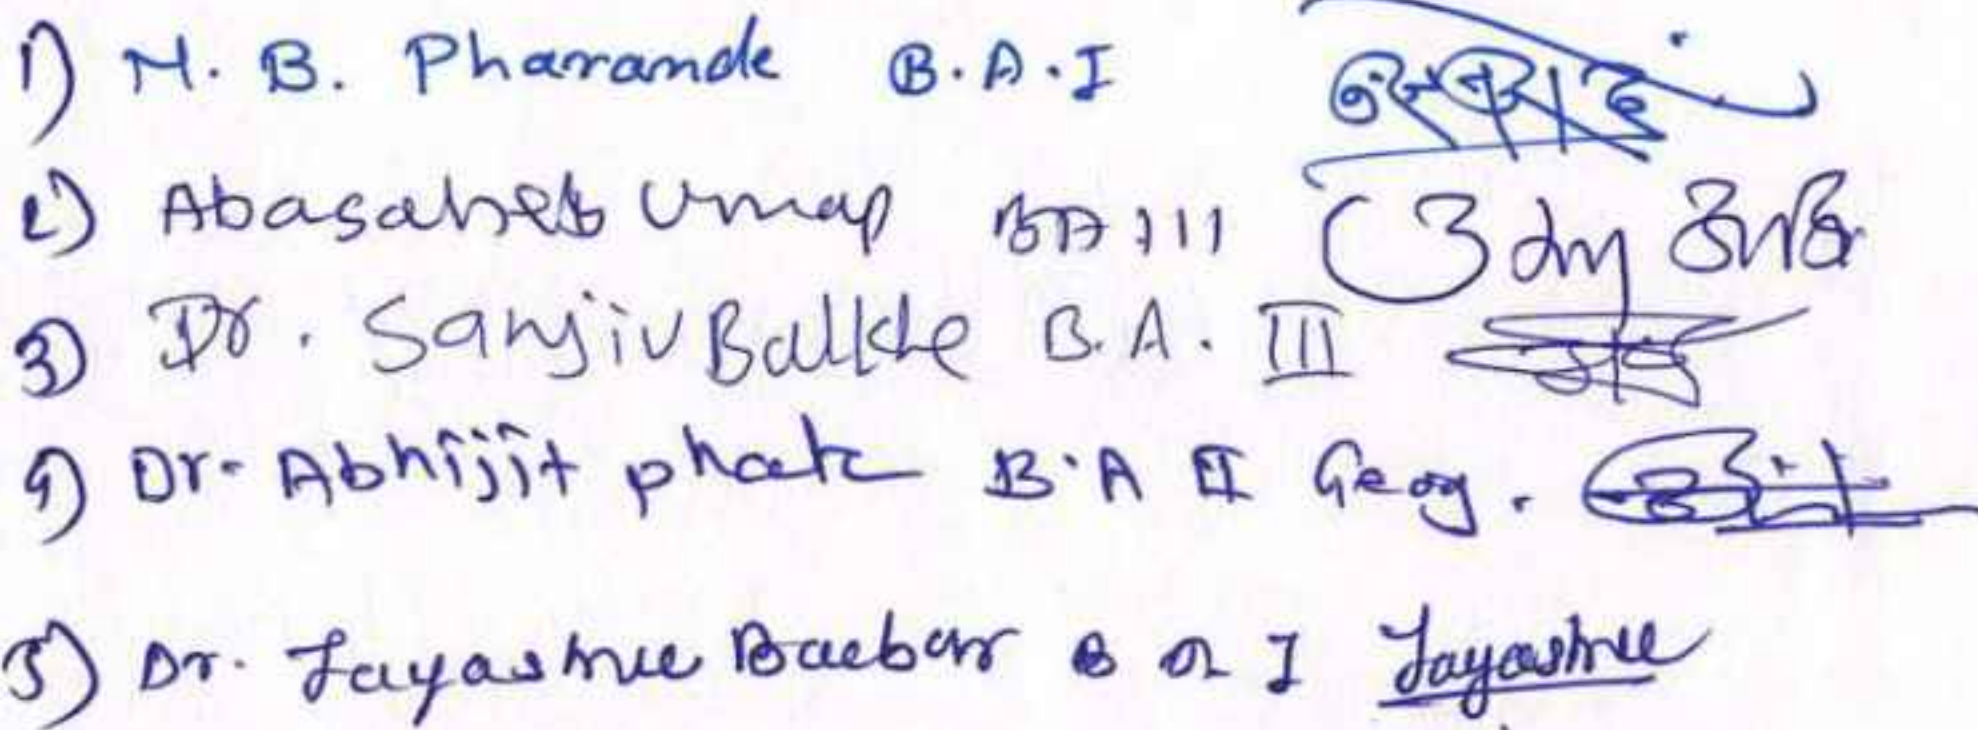 1) M. B. Pharande B.A.I
2) Abasaheb Umap BA III
3) Dr. Sanjiv Balkhe B.A. III
4) Dr. Abhijit phatc B.A II Geog.
5) Dr. Jayashree Baebar B A I Jayashree